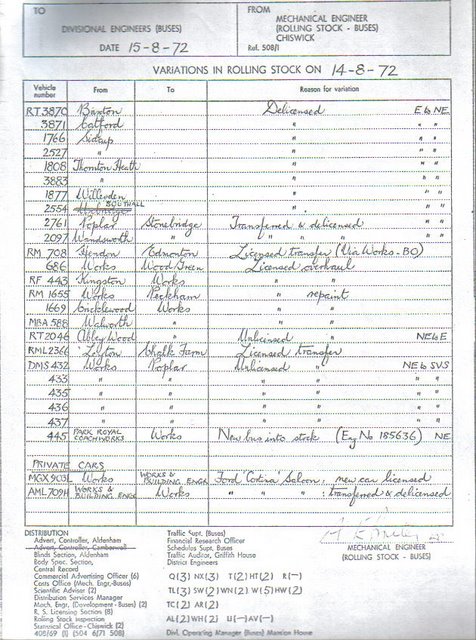 TO
DIVISIONAL ENGINEERS (BUSES)
DATE 15-8-72
FROM
MECHANICAL ENGINEER
(ROLLING STOCK - BUSES)
CHISWICK
Ref. 508/1
VARIATIONS IN ROLLING STOCK ON 14-8-72
Vehicle number From To Reason for variation
RT 3870 Brixton Delicensed E to NE
3871 Catford " " "
1766 Sidcup " " "
2527 " " " "
1808 Thornton Heath " " "
3883 " " " "
1877 Willesden " " "
2554 SOUTHALL " " "
2761 Poplar Stonebridge Transferred & delicensed " "
2097 Wandsworth " " " "
RM 708 Hendon Edmonton Licensed transfer (Via Works - BO)
686 Works Wood Green Licensed overhaul
RF 443 Kingston Works "
RM 1655 Works Peckham " repaint
1669 Cricklewood Works " "
MBA 588 Walworth " " "
RT 2046 Abbey Wood " Unlicensed " NE to E
RML 2366 Leyton Chalk Farm Licensed transfer
DMS 432 Works Poplar Unlicensed " NE to SVS
433 " " " " "
435 " " " " "
436 " " " " "
437 " " " " "
445 PARK ROYAL COACHWORKS Works New bus into stock (Eng No 185636) NE
PRIVATE CARS
MGX 903L Works WORKS & BUILDING ENGR Ford 'Cortina' Saloon, new car licensed
AML 709H WORKS & BUILDING ENGR Works " " " : transferred & delicensed
MECHANICAL ENGINEER
(ROLLING STOCK - BUSES)
DISTRIBUTION
Advert. Controller, Aldenham
Advert. Controller, Camberwell
Blinds Section, Aldenham
Body Spec. Section,
Central Record
Commercial Advertising Officer (6)
Costs Office (Mech. Engr.-Buses)
Scientific Advisor (2)
Distribution Services Manager
Mech. Engr. (Development - Buses) (2)
R. S. Licensing Section (8)
Rolling Stock Inspection
Statistical Office - Chiswick (2)
408/69 (1) (504 6/71 508)
Traffic Supt. (Buses)
Financial Research Officer
Schedules Supt, Buses
Traffic Auditor, Griffith House
District Engineers
Q (3) NX (3) T (2) HT (2) R (-)
TL (3) SW (2) WN (2) W (5) HW (2)
TC (2) AR (2)
AL (2) WH (2) U (-) AV (-)
Divl. Operating Manager (Buses) Mansion House